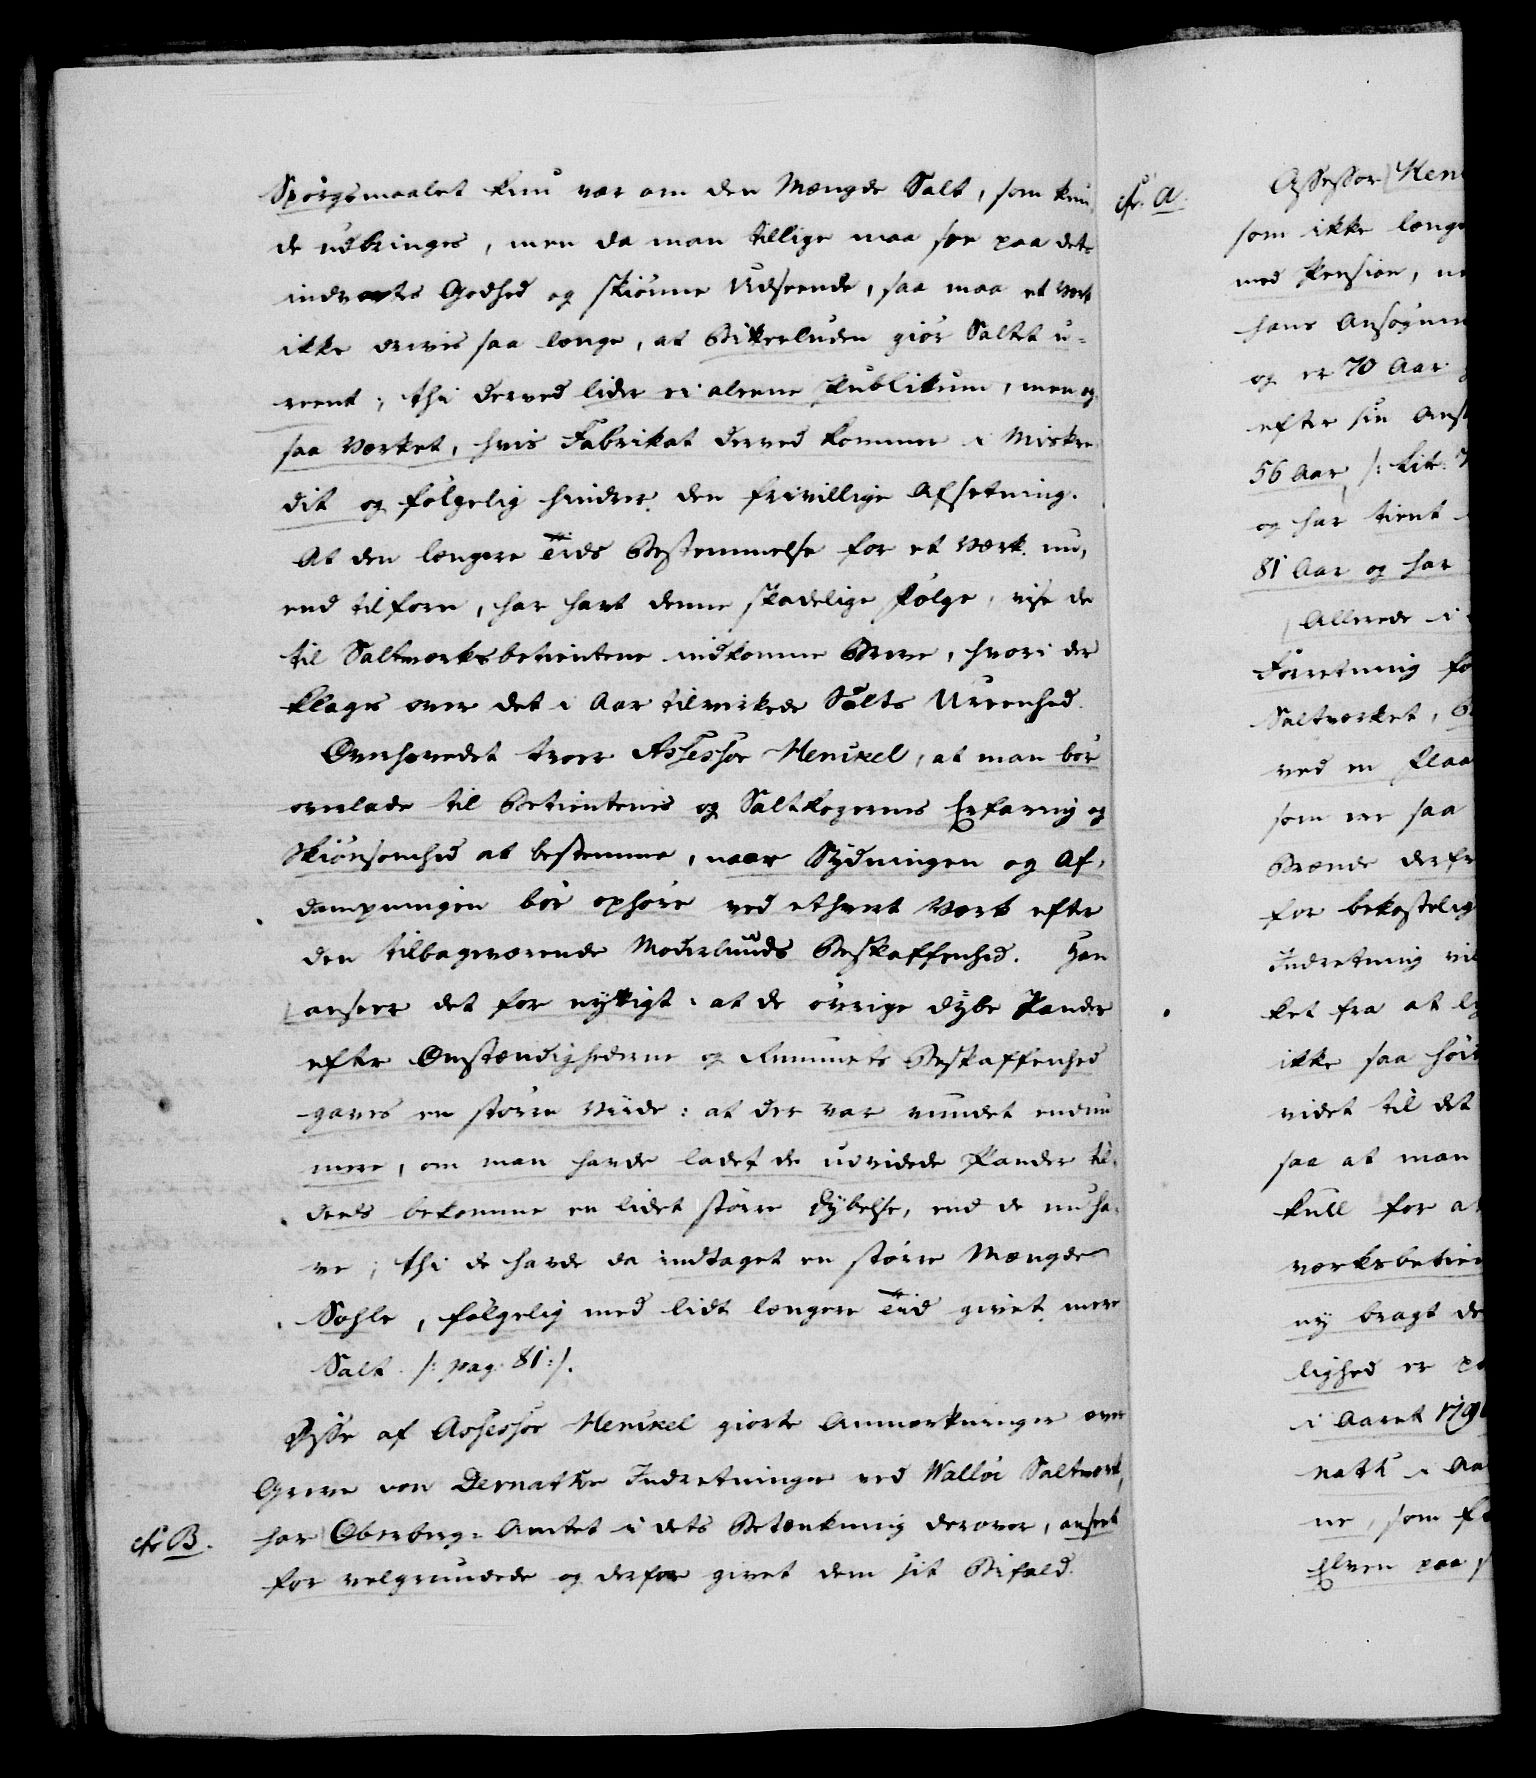 Spørgsmaalet kun var om den Mængde Salt, som kun-
de udbringes, men da man tillige maa see paa dets
indvortes Godhed og skiønne Udseende, saa maa et Verk
ikke drives saa længe, at Bitterluden giør Saltet u-
reent; thi derved lider ei aleene Publikum, men og-
saa Værket, hvis Fabrikat derved kommer i Miskre-
dit og følgelig hindrer den frivillige Afsetning.
At den længere Tids Bestemmelse for et Værk nu,
end tilforn, har havt denne skadelige Følge, vise de
til Saltværksbetientene indkomne Breve, hvori der
klages over det i Aar tilvirkede Salts Ureenhed.
Overhovedet troer Assessor Henckel, at man bør
overlade til Betientenes og Saltkogernes Erfaring og
Skiønsomhed at bestemme, naar Sydningen og Af-
dampningen bør ophøre ved ethvert Værk efter
den tilbageværende Moderluuds Beskaffenhed. Han
anseer det for nyttigt: at de øvrige dybe Pander
efter Omstændighederne og Rummets Beskaffenhed
gaves en større Viide: at der var vundet endnu
mere, om man havde ladet de udvidede Pander til-
deels bekomme en lidet større Dybelse, end de nu ha-
ve; thi de havde da indtaget en større Mængde
Sohle, følgelig med lidt længere Tiid givet mere
Salt. /: pag. 81:/.
Disse af Assessor Henckel giorte Anmærkninger over
Greve von Dernaths Indretninger ved Walløe Saltværk,
cfr B. har Oberberg-Amtet i dets Betænkning derover, anseet
for velgrundede og derfor givet dem sit Bifald.
cfr. A. Assessor Hen
som ikke længe
med Pension, n
hans Ansøgni
og er 70 Aar
efter sin Ans
56 Aar, /: Lit:
og har tient
81 Aar og har
Allerede i
Forretning fo
Saltværket,
ved en Plaa
som er saa
Brænde derfr
for bekostelig
Indretning vil
ket fra at
ikke saa høit
videt til det
saa at man
kull for at
værksbetien
ny bragt de
lighed er
i Aaret 179
nath i Aa
ne, som
Elven paa